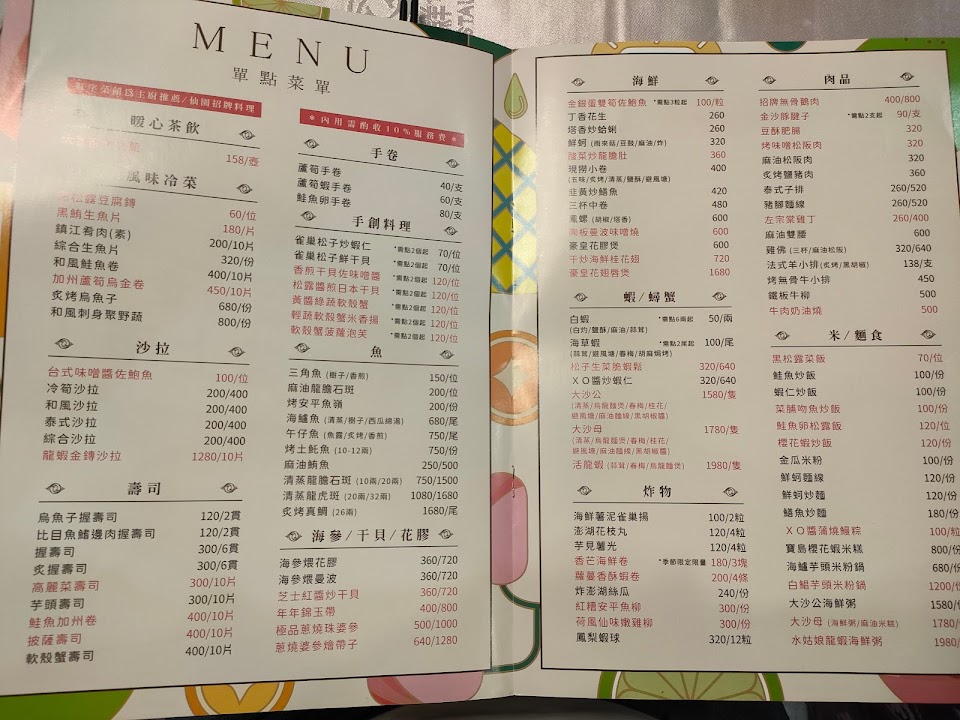 MENU
單點菜單
紅字菜餚為主廚推薦/仙園招牌料理
暖心茶飲
158/壺
風味冷菜
松露豆腐磚 60/位
黑鮪生魚片 180/片
鎮江肴肉(素) 200/10片
綜合生魚片 320
和風鮭魚卷 400/10片
加州蘆筍烏金卷 450/10片
炙烤烏魚子 680/份
和風刺身聚野蔬 800/份
沙拉
台式味噌醬佐鮑魚 100/位
冷筍沙拉 200/400
和風沙拉 200/400
泰式沙拉 200/400
綜合沙拉 200/400
龍蝦金磚沙拉 1280/10片
壽司
烏魚子握壽司 120/2貫
比目魚鰭邊肉握壽司 120/2貫
握壽司 300/6貫
炙握壽司 300/6貫
高麗菜壽司 300/10片
芋頭壽司 300/10片
鮭魚加州卷 400/10片
披薩壽司 400/10片
軟殼蟹壽司 400/10片
*內用需酌收10%服務費*
手卷
蘆筍手卷 40/支
蘆筍蝦手卷 60/支
鮭魚卵手卷 80/支
手創料理
雀巢松子炒蝦仁 *需點2個起 70/位
雀巢松子鮮干貝 *需點2個起 70/位
香煎干貝佐味噌醬 *需點2個起 120/位
松露醬煎日本干貝 *需點2個起 120/位
黃醬綠蔬軟殼蟹 *需點2個起 120/位
輕蔬軟殼蟹米香揚 *需點2個起 120/位
軟殼蟹菠蘿泡芙 *需點2個起 120/位
魚
三角魚 (樹子/香煎) 150/位
麻油龍膽石斑 200/位
烤安平魚嶺 200/份
海鱸魚 (清蒸/樹子/西瓜綿湯) 680/尾
午仔魚 (魚露/炙烤/香煎) 750/尾
烤土魠魚 (10-12兩) 750/份
麻油鮪魚 250/500
清蒸龍膽石斑 (10兩/20兩) 750/1500
清蒸龍虎斑 (20兩/32兩) 1080/1680
炙烤真鯛 (26兩) 1680/尾
海參/干貝/花膠
海參煨花膠 360/720
海參煨曼波 360/720
芝士紅醬炒干貝 360/720
年年錦玉帶 400/800
極品蔥燒珠婆參 500/1000
蔥燒婆參燴帶子 640/1280
海鮮
金銀蛋雙筍佐鮑魚 *需點3粒起 100/粒
丁香花生 260
塔香炒蛤蜊 260
鮮蚵 (雨來菇/豆豉/麻油/炸) 320
酸菜炒龍膽肚 360
現撈小卷 400
(五味/炙烤/清蒸/鹽酥/避風塘)
韭黃炒鱔魚 420
三杯中卷 480
鳳螺 (胡椒/塔香) 600
陶板曼波味噌燒 600
豪皇花膠煲 600
干炒海鮮桂花翅 720
豪皇花翅唇煲 1680
蝦/蟳蟹
白蝦 *需點6兩起 50/兩
(白灼/鹽酥/麻油/蒜茸)
海草蝦 *需點2尾起 100/尾
(蒜茸/避風塘/春梅/胡麻焗烤)
松子生菜脆蝦鬆 320/640
XO醬炒蝦仁 320/640
大沙公 1580/隻
(清蒸/烏龍麵煲/春梅/桂花/
避風塘/麻油麵線/黑胡椒醬)
大沙母 1780/隻
(清蒸/烏龍麵煲/春梅/桂花/
避風塘/麻油麵線/黑胡椒醬)
活龍蝦 (蒜茸/春梅/烏龍麵煲) 1980/隻
炸物
海鮮薯泥雀巢揚 100/2粒
澎湖花枝丸 120/4粒
芋見薯光 120/4粒
香芒海鮮卷 *季節限定限量 180/3塊
蘿蔓香酥蝦卷 200/4條
炸澎湖絲瓜 240/份
紅糟安平魚柳 300/份
荷風仙味嫩雞柳 300/份
鳳梨蝦球 320/12粒
肉品
招牌無骨鵝肉 400/800
金沙豚腱子 *需點2支起 90/支
豆酥肥腸 320
烤味噌松阪肉 320
麻油松阪肉 320
炙烤鹽豬肉 360
泰式子排 260/520
豬腳麵線 260/520
左宗棠雞丁 260/400
麻油雙腰 600
雞佛 (三杯/麻油松阪) 320/640
法式羊小排(炙烤/黑胡椒) 138/支
烤無骨牛小排 450
鐵板牛柳 500
牛肉奶油燒 500
米/麵食
黑松露菜飯 70/位
鮭魚炒飯 100/份
蝦仁炒飯 100/份
菜脯吻魚炒飯 100/份
鮭魚卵松露飯 120/位
櫻花蝦炒飯 120/份
金瓜米粉 100/份
鮮蚵麵線 120/份
鮮蚵炒麵 120/份
鱔魚炒麵 180/份
XO醬蒲燒鰻粽 100/粒
寶島櫻花蝦米糕 800/份
海鱸芋頭米粉鍋 680/份
白鯧芋頭米粉鍋 1200/份
大沙公海鮮粥 1580/份
大沙母 (海鮮粥/麻油米糕) 1780/
水姑娘龍蝦海鮮粥 1980/